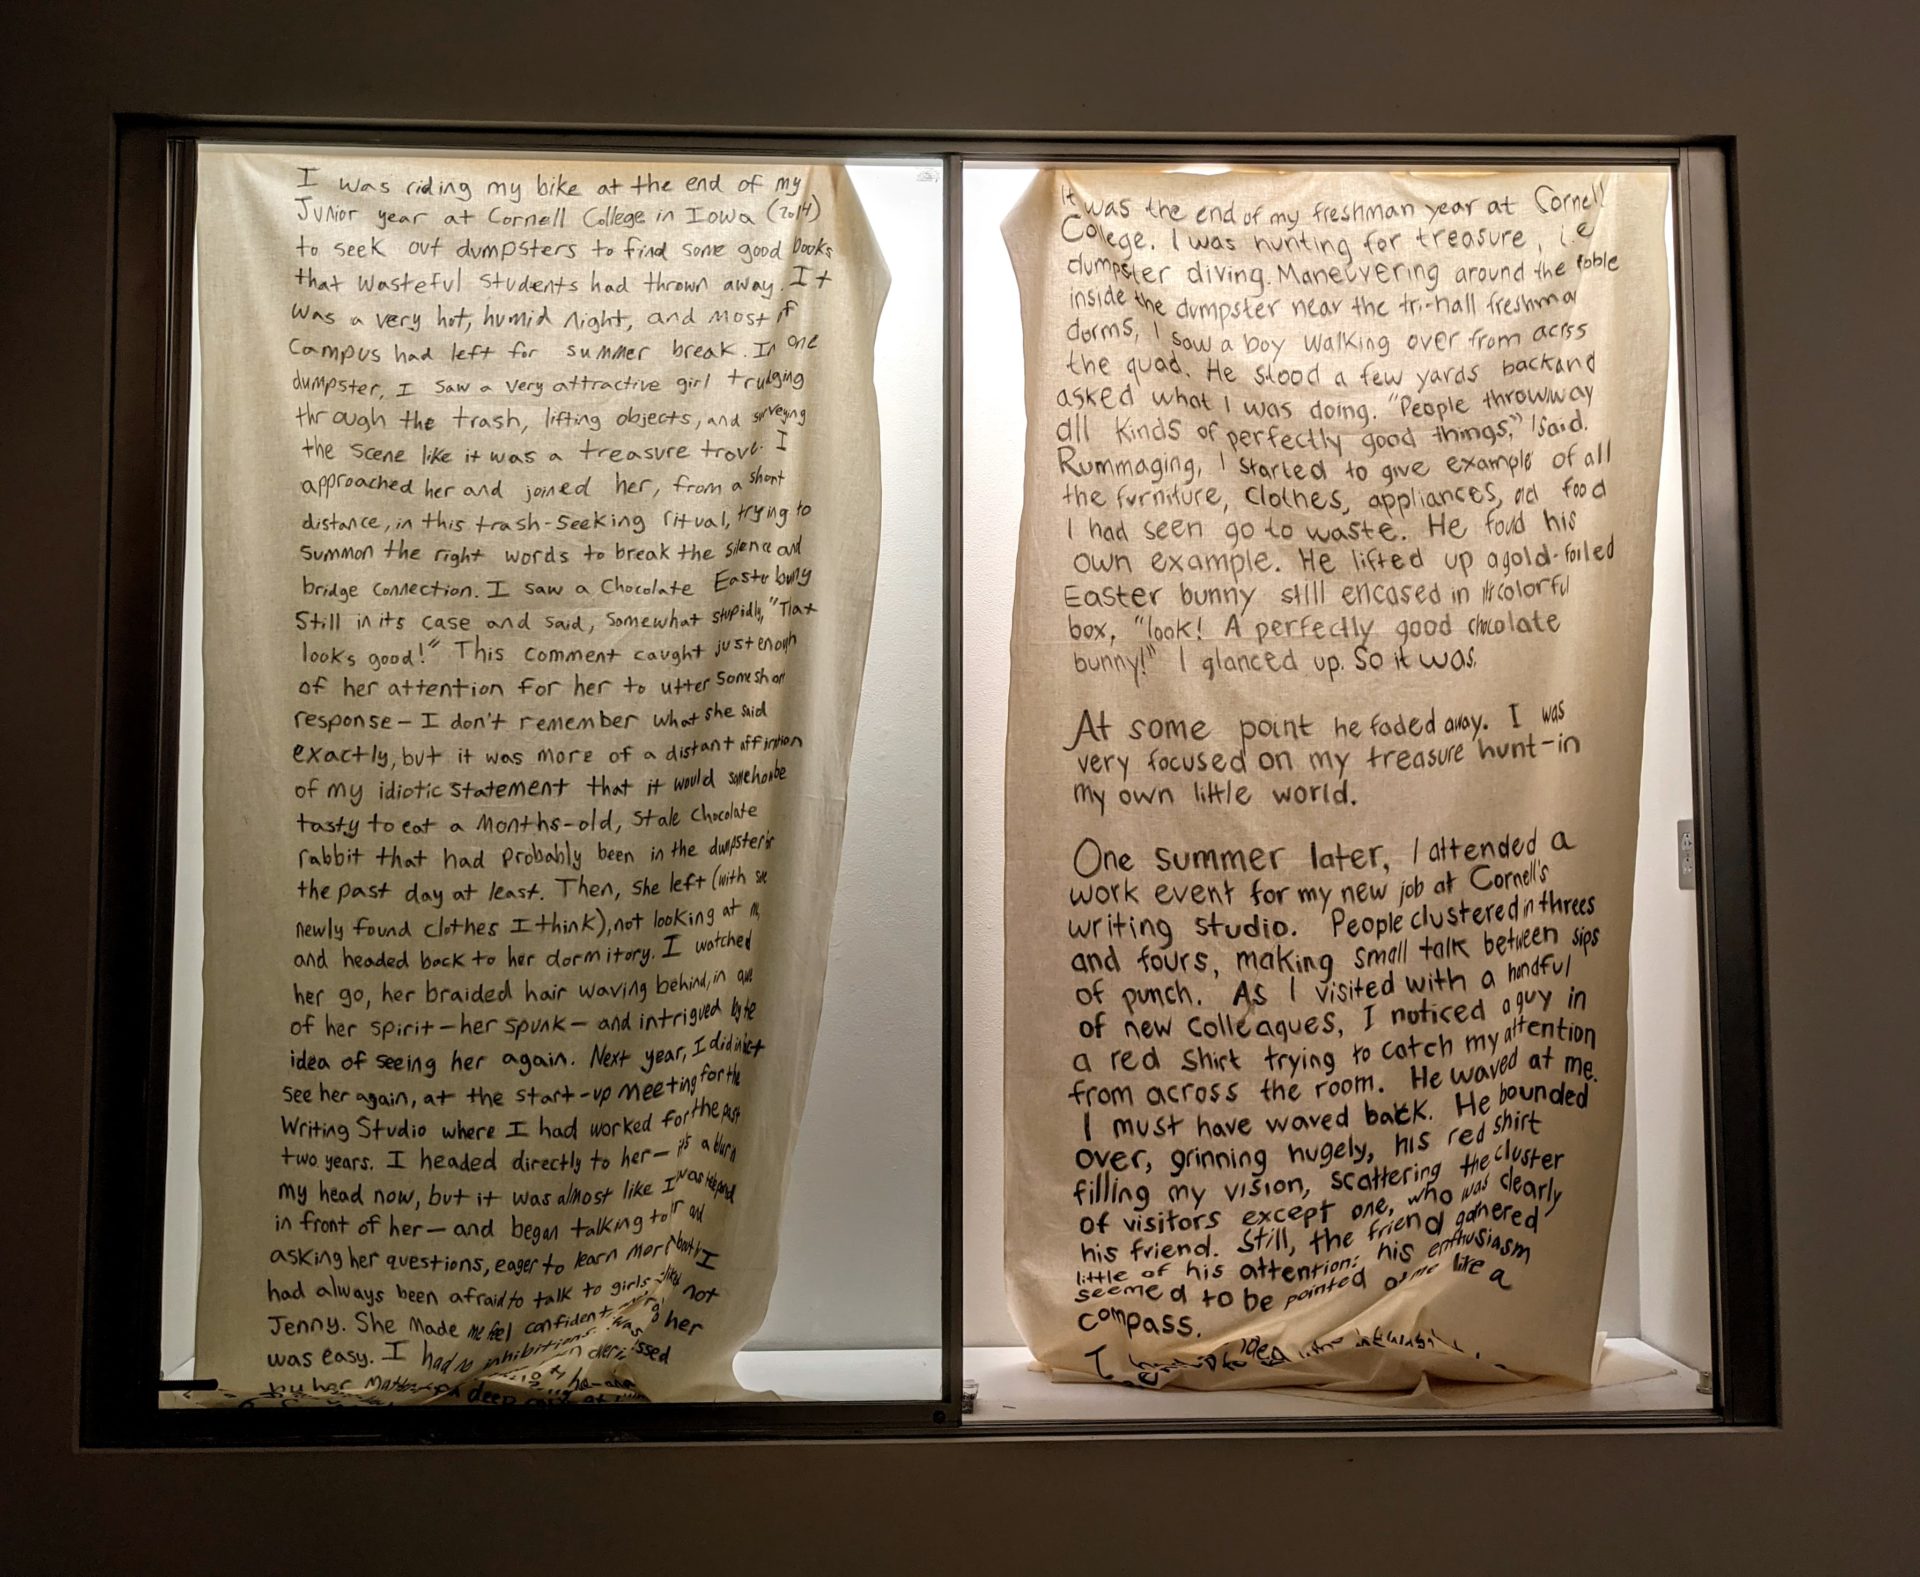 I was riding my bike at the end of my
Junior year at Cornell College in Iowa (2014)
to seek out dumpsters to find some good books
that wasteful students had thrown away. It
was a very hot, humid night, and most of
campus had left for summer break. In one
dumpster, I saw a very attractive girl trudging
through the trash, lifting objects, and surveying
the scene like it was a treasure trove. I
approached her and joined her, from a short
distance, in this trash-seeking ritual, trying to
summon the right words to break the silence and
bridge connection. I saw a Chocolate Easter bunny
Still in its case and said, somewhat stupidly, "That
looks good!" This comment caught just enough
of her attention for her to utter some short
response - I don't remember what she said
exactly, but it was more of a distant
of my idiotic statement that it would somehow be
tasty to eat a months-old, stale chocolate
rabbit that had probably been in the dumpster for
the past day at least. Then, she left (with some
newly found clothes I think), not looking at me,
and headed back to her dormitory. I watched
her go, her braided hair waving behind, in awe
of her spirit - her spunk - and intrigued by the
idea of seeing her again. Next year, I did in fact
see her again, at the start-up meeting for the
Writing Studio where I had worked for the past
two years. I headed directly to her - it's a blur in
my head now, but it was almost like I was
in front of her - and began talking to her and
asking her questions, eager to learn more about her. I
had always been afraid to talk to girls - but not
Jenny. She made me feel confident. her
was easy. I had no inhibitions. I was
by her
deep
It was the end of my freshman year at Cornell
College. I was hunting for treasure, i.e
dumpster diving. Maneuvering around the rubble
inside the dumpster near the tri-hall freshman
dorms, I saw a boy walking over from across
the quad. He stood a few yards back and
asked what I was doing. "People throw away
all kinds of perfectly good things," I said.
Rummaging, I started to give example of all
the furniture, clothes, appliances, and food
I had seen go to waste. He found his
own example. He lifted up a gold-foiled
Easter bunny still encased in its colorful
box, "look! A perfectly good chocolate
bunny!" I glanced up. So it was.
At some point he faded away. I was
very focused on my treasure hunt-in
my own little world.
One summer later, I attended a
work event for my new job at Cornell's
writing studio. People clustered in threes
and fours, making small talk between sips
of punch. As I visited with a handful
of new colleagues, I noticed a guy in
a red shirt trying to catch my attention
from across the room. He waved at me.
I must have waved back. He bounded
over, grinning hugely, his red shirt
filling my vision, scattering the cluster
of visitors except one, who was clearly
his friend. Still, the friend gathered
little of his attention: his enthusiasm
seemed to be pointed at me like a
compass.
I